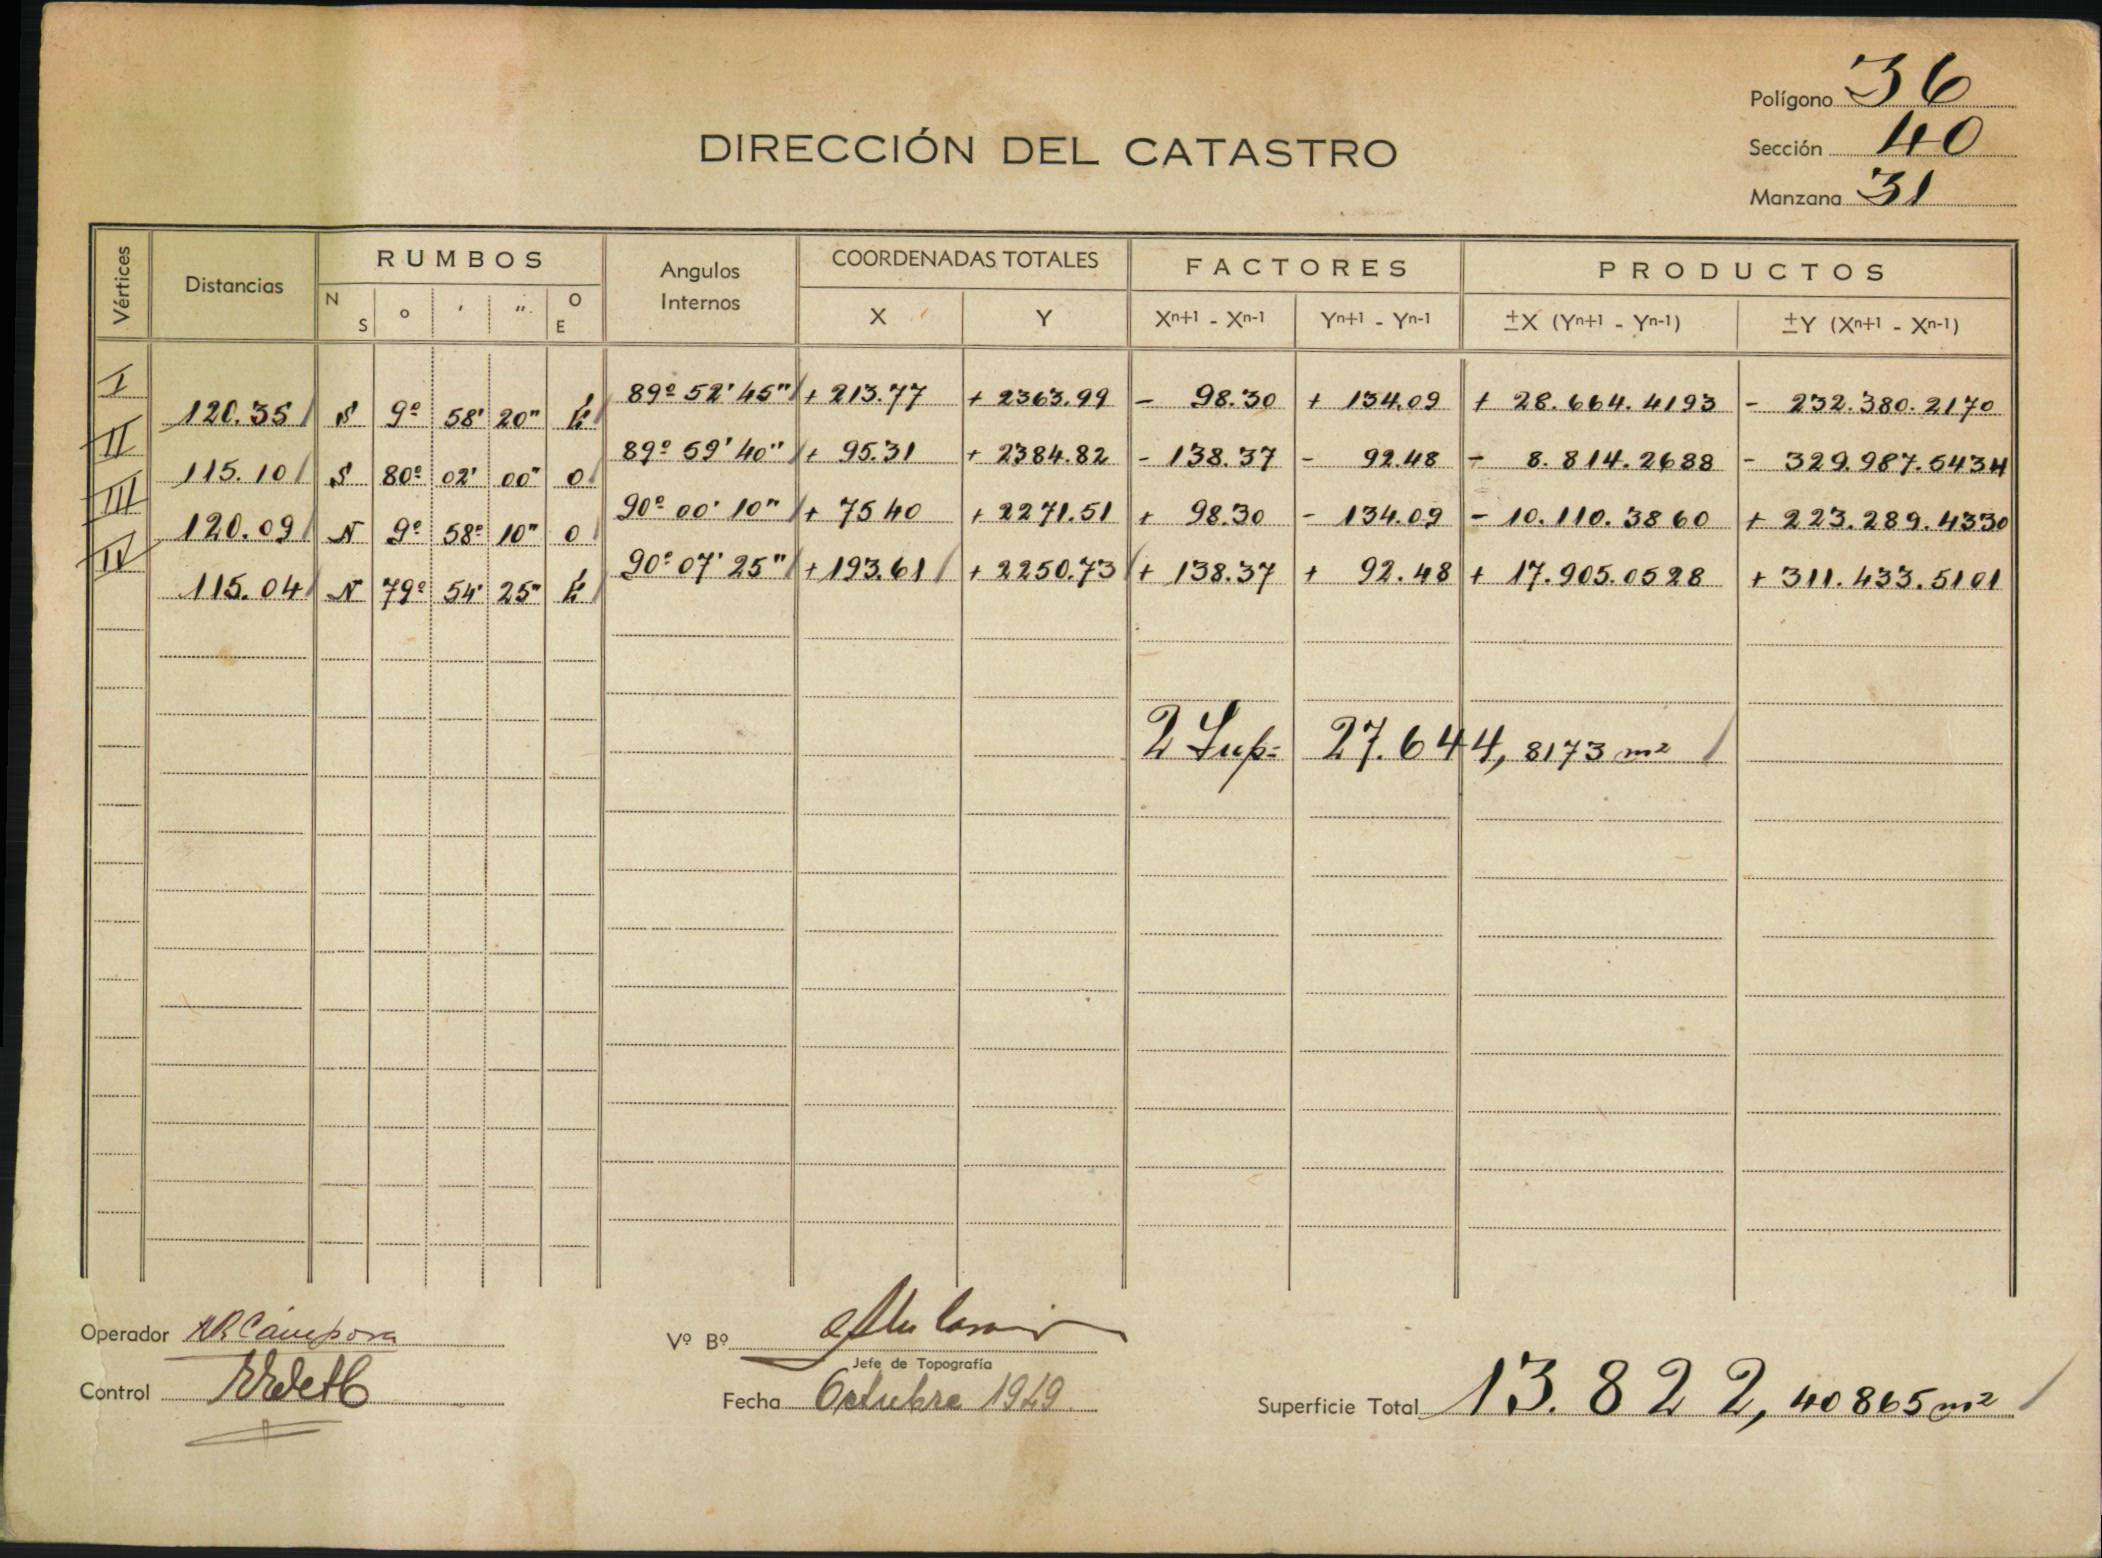 Polígono 36
DIRECCIÓN DEL CATASTRO
Sección 40
Manzana 31
Vértices Distancias RUMBOS Angulos Internos COORDENADAS TOTALES FACTORES PRODUCTOS
N S ° ' " O E X Y Xn+1 - Xn-1 Yn+1 - Yn-1 ±X (Yn+1 - Yn-1) ±Y (Xn+1 - Xn-1)
I 89º 52' 45" + 213.77 + 2363.99 - 98.30 + 134.09 + 28.664.4193 - 232.380.2170
120.35 S 9º 58' 20" E
II 89º 59' 40" + 95.31 + 2384.82 - 138.37 - 92.48 - 8.814.2688 - 329.987.5434
115.10 S 80º 02' 00" O
III 90º 00' 10" + 75 40 + 2271.51 + 98.30 - 134.09 - 10.110.3860 + 223.289.4330
120.09 N 9º 58º 10" O
IV 90º 07' 25" + 193.61 + 2250.73 + 138.37 + 92.48 + 17.905.0528 + 311.433.5101
115.04 N 79º 54' 25" E
2 Sup= 27.644, 8173 m²
Operador
Vº Bº
Jefe de Topografía
Control
Fecha Octubre 1949
Superficie Total 13.822, 40865 m²